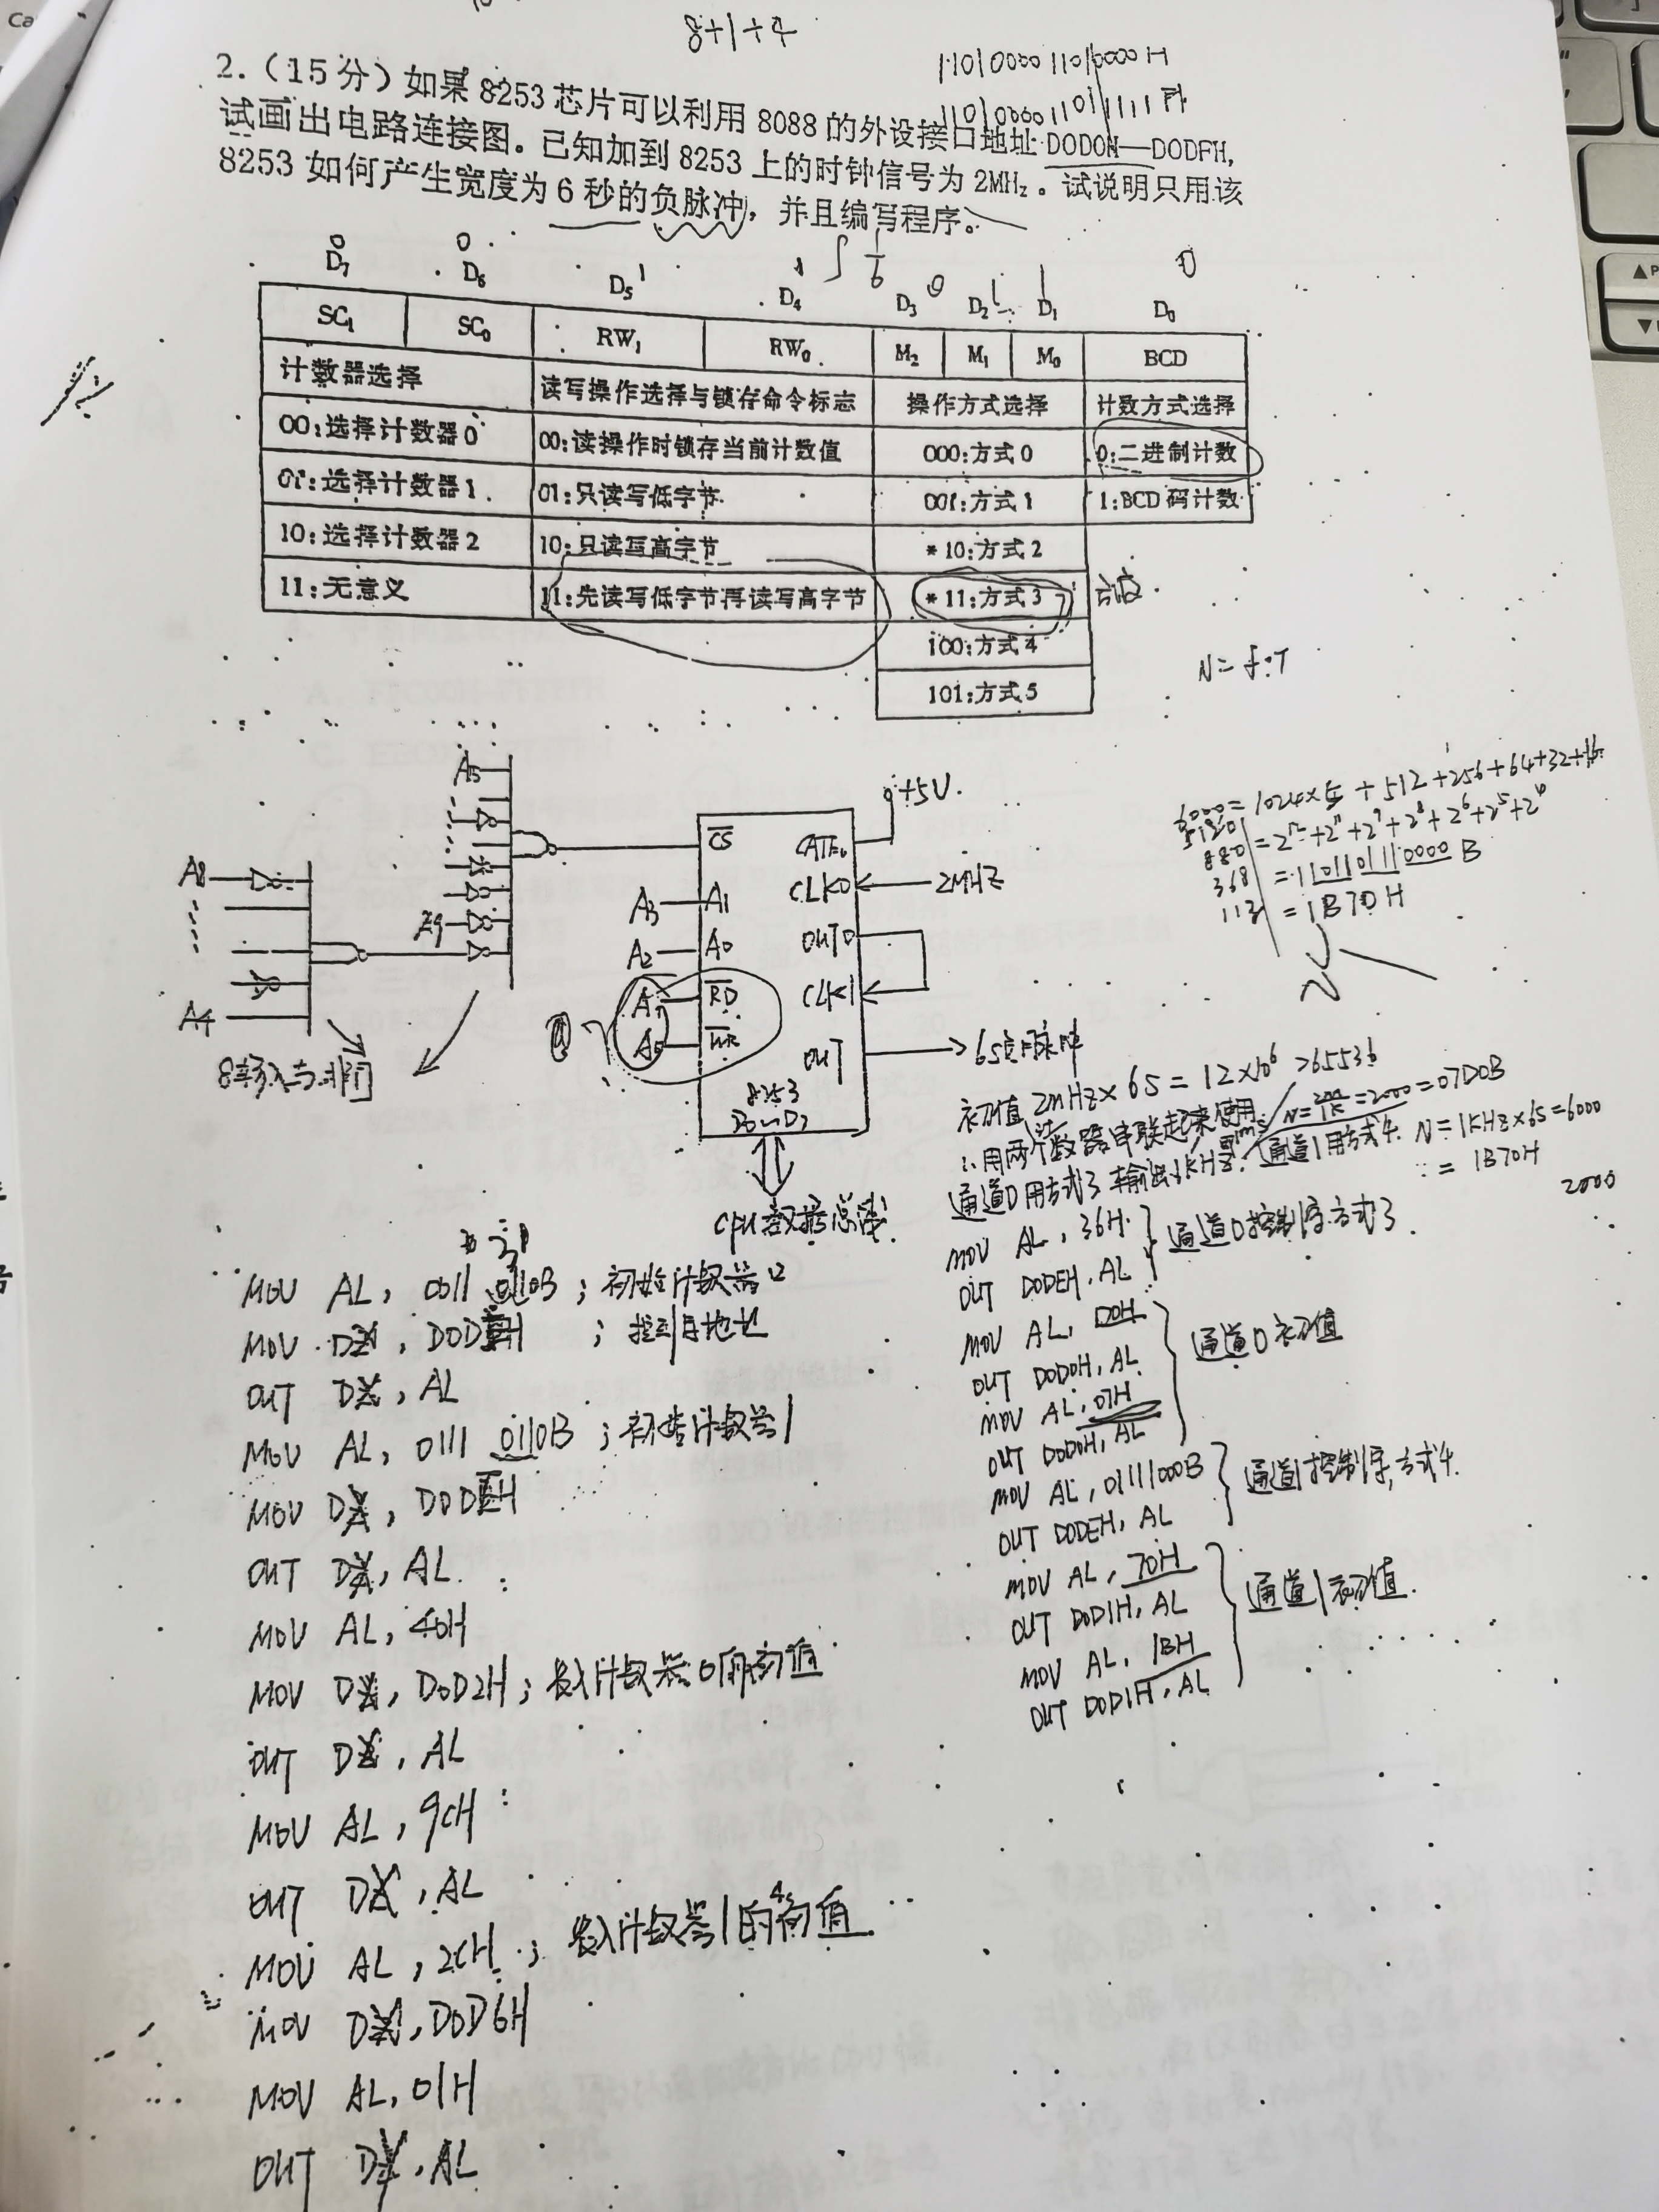 Ca
8+1+4
1101 0000 1101 0000 H
1101 0000 1101 1111 H
2.(15分)如果8253芯片可以利用8088的外设接口地址D0D0H—D0DFH,
试画出电路连接图。已知加到8253上的时钟信号为2MHz。试说明只用该
8253如何产生宽度为6秒的负脉冲,并且编写程序。
0 0 1 1 0 1 1 0
D7 D6 D5 D4 D3 D2 D1 D0
SC1 SC0 RW1 RW0 M2 M1 M0 BCD
计数器选择 读写操作选择与锁存命令标志 操作方式选择 计数方式选择
00:选择计数器0 00:读操作时锁存当前计数值 000:方式0 0:二进制计数
01:选择计数器1 01:只读写低字节 001:方式1 1:BCD码计数
10:选择计数器2 10:只读写高字节 *10:方式2
11:无意义 11:先读写低字节再读写高字节 *11:方式3
100:方式4
101:方式5
N=f·T
A15
A9
A8
A4
8输入与非门
CS
A3 A1
A2 A0
RD
WR
8253
D0~D7
CPU数据总线
GATE0
+5V
CLK0 2MHZ
OUT0
CLK1
OUT
6S负脉冲
6000=1024×5+512+256+64+32+16
=2^12+2^10+2^9+2^8+2^6+2^5+2^4
880
368
112
=1101101110000B
=1B70H
N
初值 2mHz×6S=12×10^6>65536
∴用两个计数器串联起来使用
=2000=07D0B
通道0用方式3输出1KHz.
通道1用方式4. N=1KHz×6S=6000
=1B70H
2000
MOV AL, 36H
OUT D0DEH, AL
通道0控制字方式3.
MOV AL, D0H
OUT D0D0H, AL
MOV AL, 07H
OUT D0D0H, AL
通道0初值
MOV AL, 01111000B
OUT D0DEH, AL
通道1控制字,方式4.
MOV AL, 70H
OUT D0D1H, AL
MOV AL, 1BH
OUT D0D1H, AL
通道1初值.
MOV AL, 0011 0110B ; 初始计数器0
MOV DX, D0DEH ; 控制字地址
OUT DX, AL
MOV AL, 0111 0110B ; 初始计数器1
MOV DX, D0DEH
OUT DX, AL
MOV AL, 40H
MOV DX, D0D2H ; 装入计数器0的初值
OUT DX, AL
MOV AL, 9CH
OUT DX, AL
MOV AL, 2CH ; 装入计数器1的初值
MOV DX, D0D6H
MOV AL, 01H
OUT DX, AL